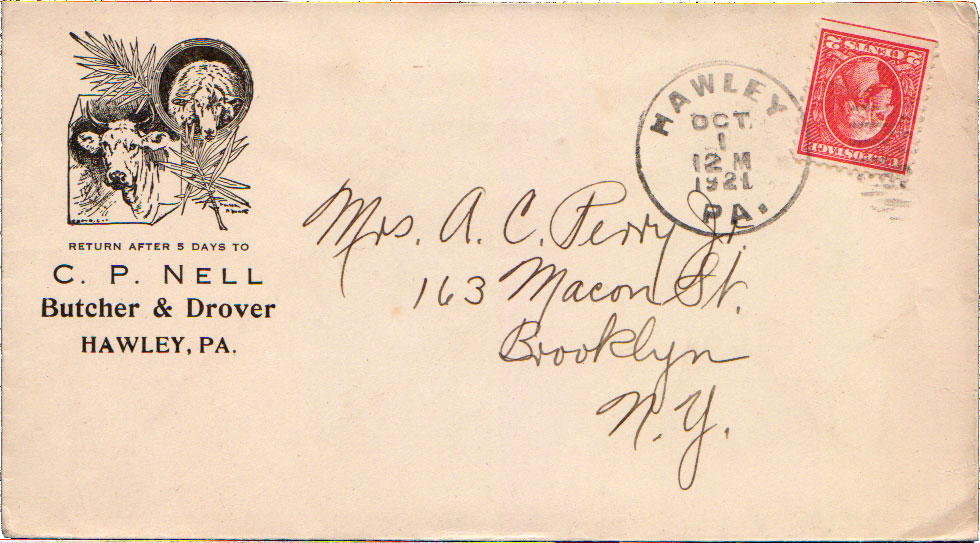 RETURN AFTER 5 DAYS TO
C. P. NELL
Butcher & Drover
HAWLEY, PA.
HAWLEY
OCT.
1
12 M
1921
PA.
2 CENTS 2
U.S. POSTAGE
Mrs. A. C. Perry Jr.
163 Macon St.
Brooklyn
N. Y.